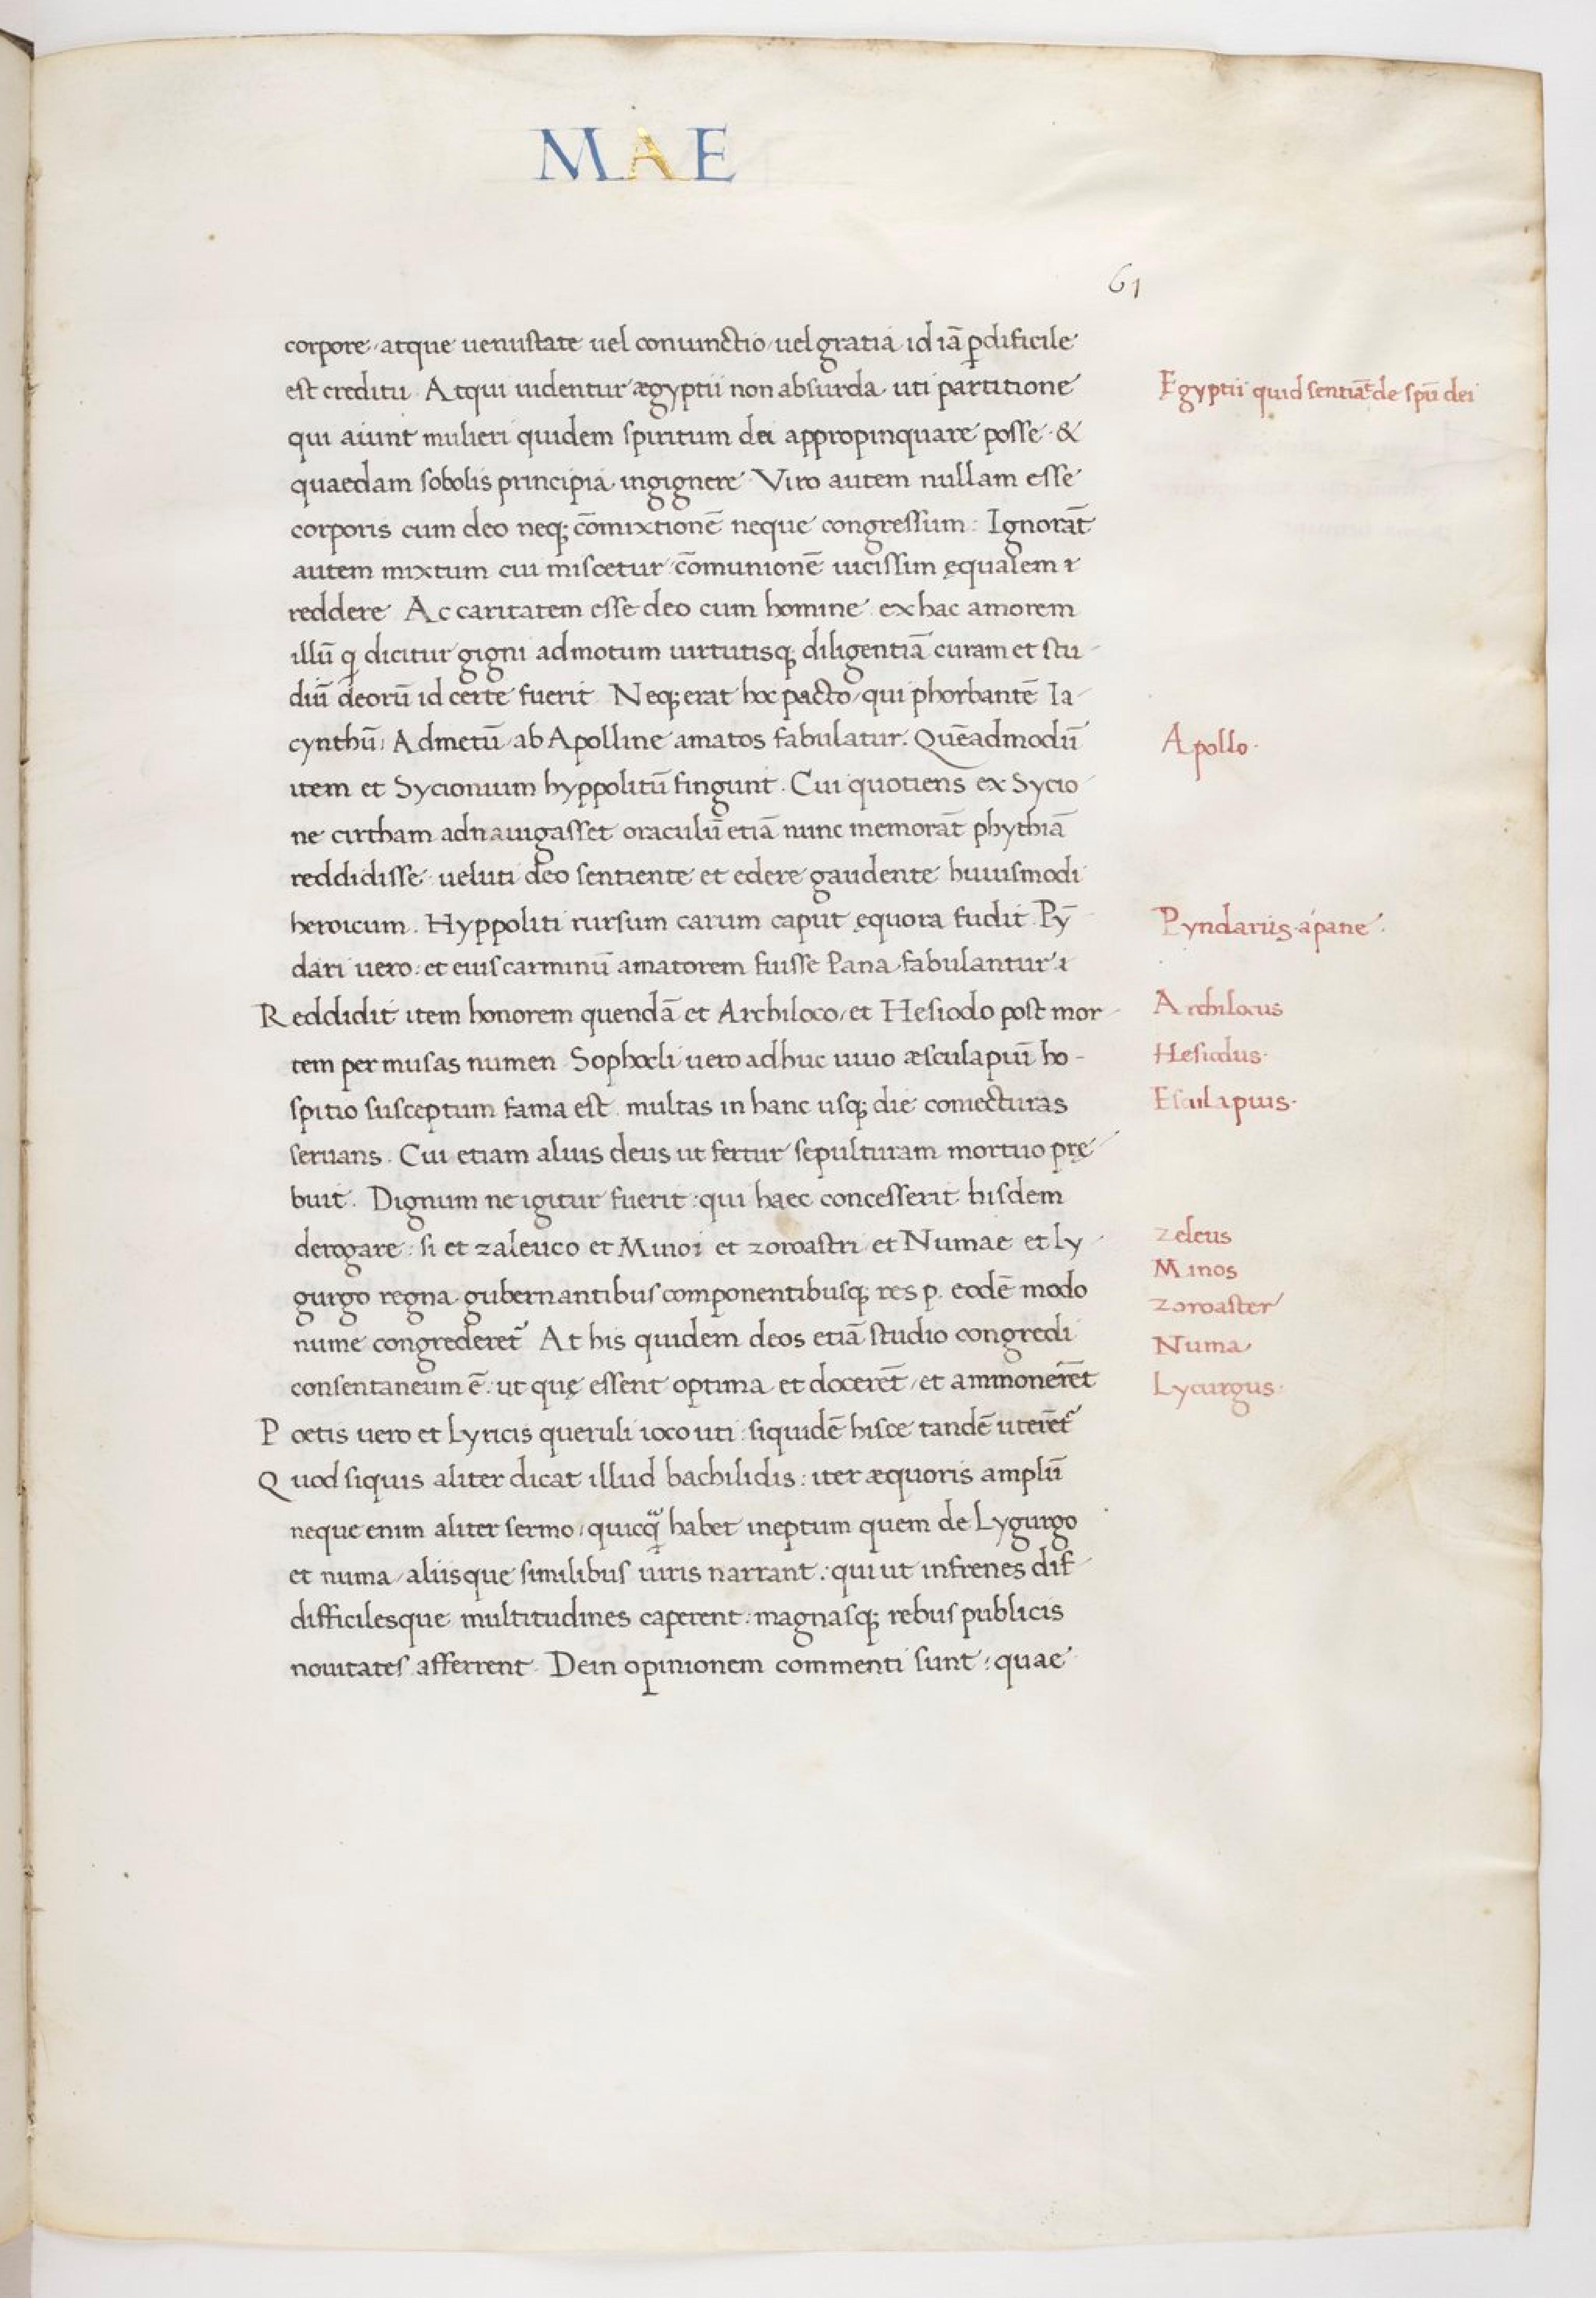 MAE
61
corpore, atque uenustate uel coniunctio, uel gratia id iā ꝑdificile
est creditu. Atqui uidentur ægyptii non absurda uti partitione
Egyptii quid sentiāt de spū dei
qui aiunt mulieri quidem spiritum dei appropinquare posse &
quaedam sobolis principia ingignere. Viro autem nullam esse
corporis cum deo neq; cōmixtionē neque congressum: Ignorāt
autem mixtum cui miscetur cōmunionē uicissim ęqualem
reddere. Ac caritatem esse deo cum homine ex hac amorem
illū q dicitur gigni ad motum uirtutisq; diligentiā curam et stu-
diū deorū id certe fuerit. Neq; erat hoc pacto, qui phorbantē Ia-
cynthū, Admetū ab Apolline amatos fabulatur. Quēadmodū
Apollo.
item et Sycionium hyppolitū fingunt. Cui quotiens ex Sycio-
ne cirtham adnauigasset oraculū etiā nunc memorāt phythiā
reddidisse ueluti deo sentiente et edere gaudente huiusmodi
heroicum. Hyppoliti rursum carum caput ęquora fudit. Pȳ-
Pyndarus a pane.
dari uero: et eius carminū amatorem fuisse Pana fabulantur
Reddidit item honorem quendā et Archiloco, et Hesiodo post mor-
Archilocus
tem per musas numen. Sophocli uero adhuc uiuo æsculapiū ho-
Hesiodus.
spitio susceptum fama est. multas in hanc usq; die coniecturas
Esculapius.
seruans. Cui etiam alius deus ut fertur sepulturam mortuo prę-
buit. Dignum ne igitur fuerit: qui haec concesserit hisdem
derogare: si et zaleuco et Minoi et zoroastri et Numae et Ly-
zeleus
Minos
gurgo regna gubernantibus componentibusq; res p. eodē modo
zoroaster
nume congrederet̃. At his quidem deos etiā studio congredi
Numa
consentaneum ē: ut quę essent optima et docerēt, et ammonerēt
Lycurgus.
Poetis uero et Lyricis queruli ioco uti: siquidē hisce tandē uteret̃
Quod siquis aliter dicat illud bachilidis: iter æquoris amplū
neque enim aliter sermo, quicq̃ habet ineptum quem de Lygurgo
et numa, aliisque similibus uiris narrant: qui ut infrenes dif-
difficilesque multitudines caperent: magnasq; rebus publicis
nouitates afferrent. Dein opinionem commenti sunt: quae